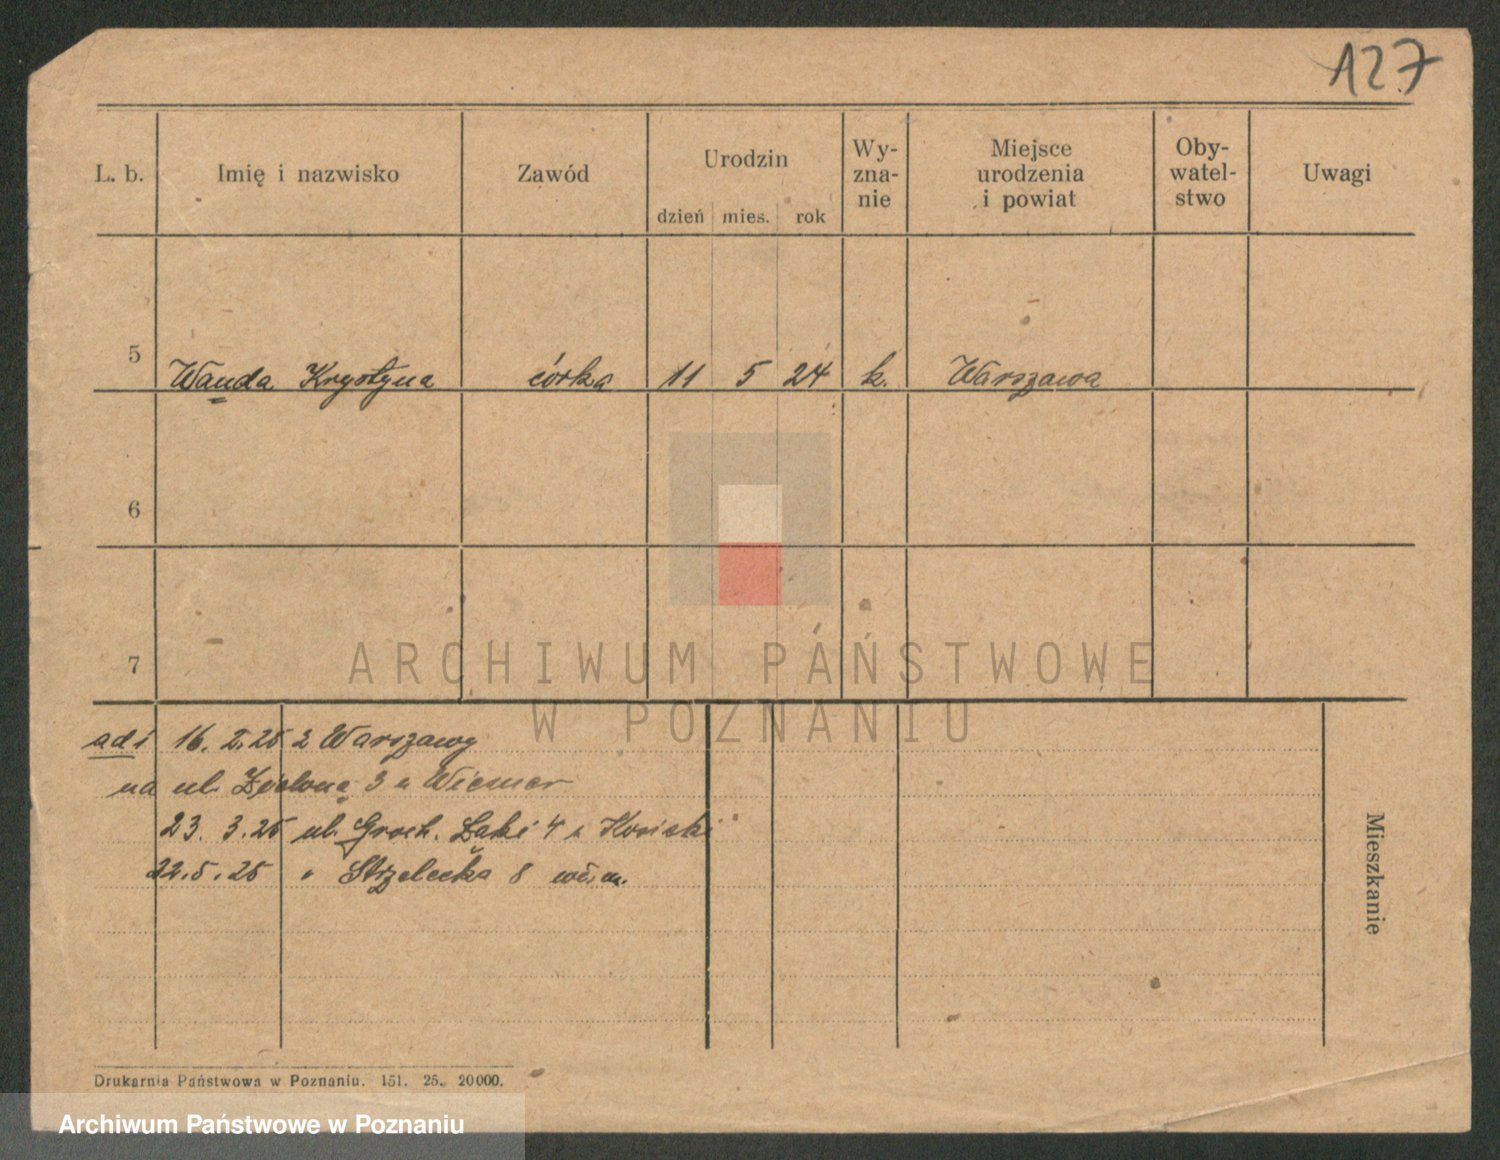 127
L. b. Imię i nazwisko Zawód Urodzin dzień mies. rok Wy- zna- nie Miejsce urodzenia i powiat Oby- watel- stwo Uwagi
5 Wanda Krystyna córka 11 5 24 k. Warszawa
6
7
ARCHIWUM PAŃSTWOWE
W POZNANIU
ad 1 16. 2. 25 z Warszawy
na ul. Zielona 3 u Wiesner
23. 3. 25 ul. Groch. Łąki 4 Kosicki
22. 5. 25 " Strzelecka 8
Mieszkanie
Drukarnia Państwowa w Poznaniu. 151. 25. 20000.
Archiwum Państwowe w Poznaniu